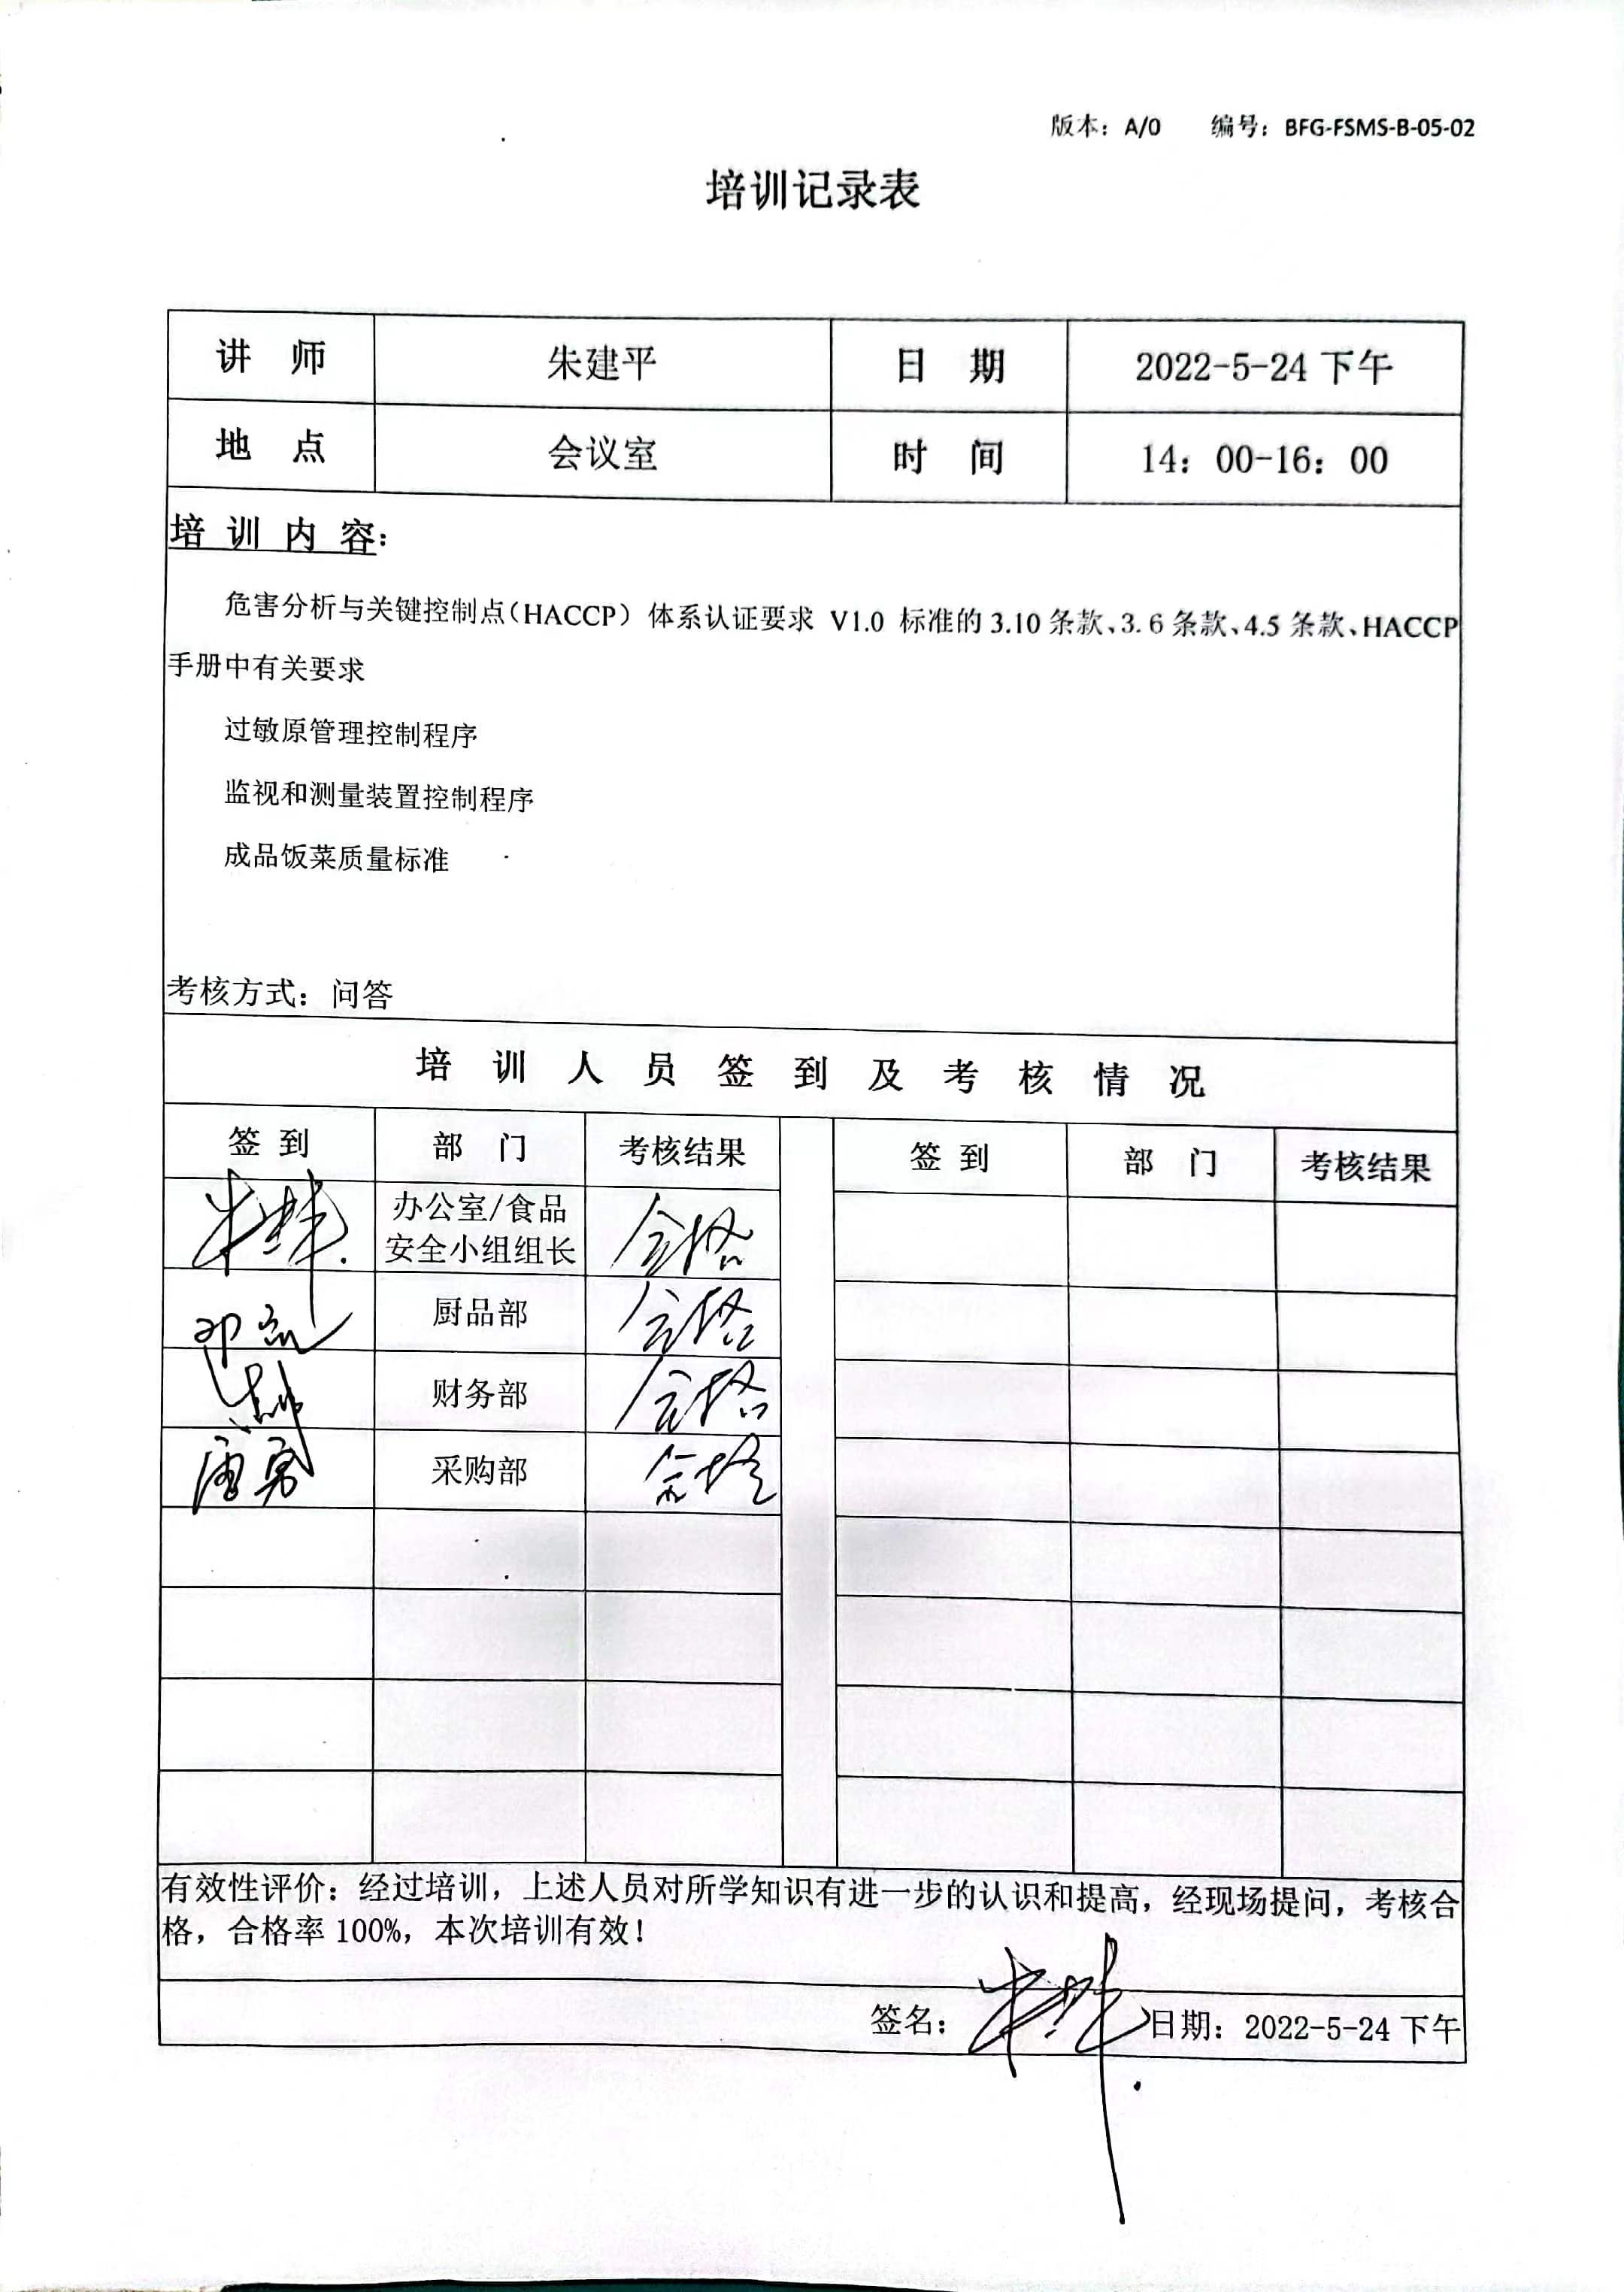 版本：A/0 编号：BFG-FSMS-B-05-02
培训记录表
讲 师 朱建平 日 期 2022-5-24下午
地 点 会议室 时 间 14：00-16：00
培 训 内 容：
危害分析与关键控制点（HACCP）体系认证要求 V1.0 标准的 3.10 条款、3.6 条款、4.5 条款、HACCP
手册中有关要求
过敏原管理控制程序
监视和测量装置控制程序
成品饭菜质量标准
考核方式：问答
培 训 人 员 签 到 及 考 核 情 况
签 到 部 门 考核结果 签 到 部 门 考核结果
办公室/食品
安全小组组长 合格
厨品部 合格
财务部 合格
唐勇 采购部 合格
有效性评价：经过培训，上述人员对所学知识有进一步的认识和提高，经现场提问，考核合
格，合格率 100%，本次培训有效！
签名： 日期：2022-5-24下午